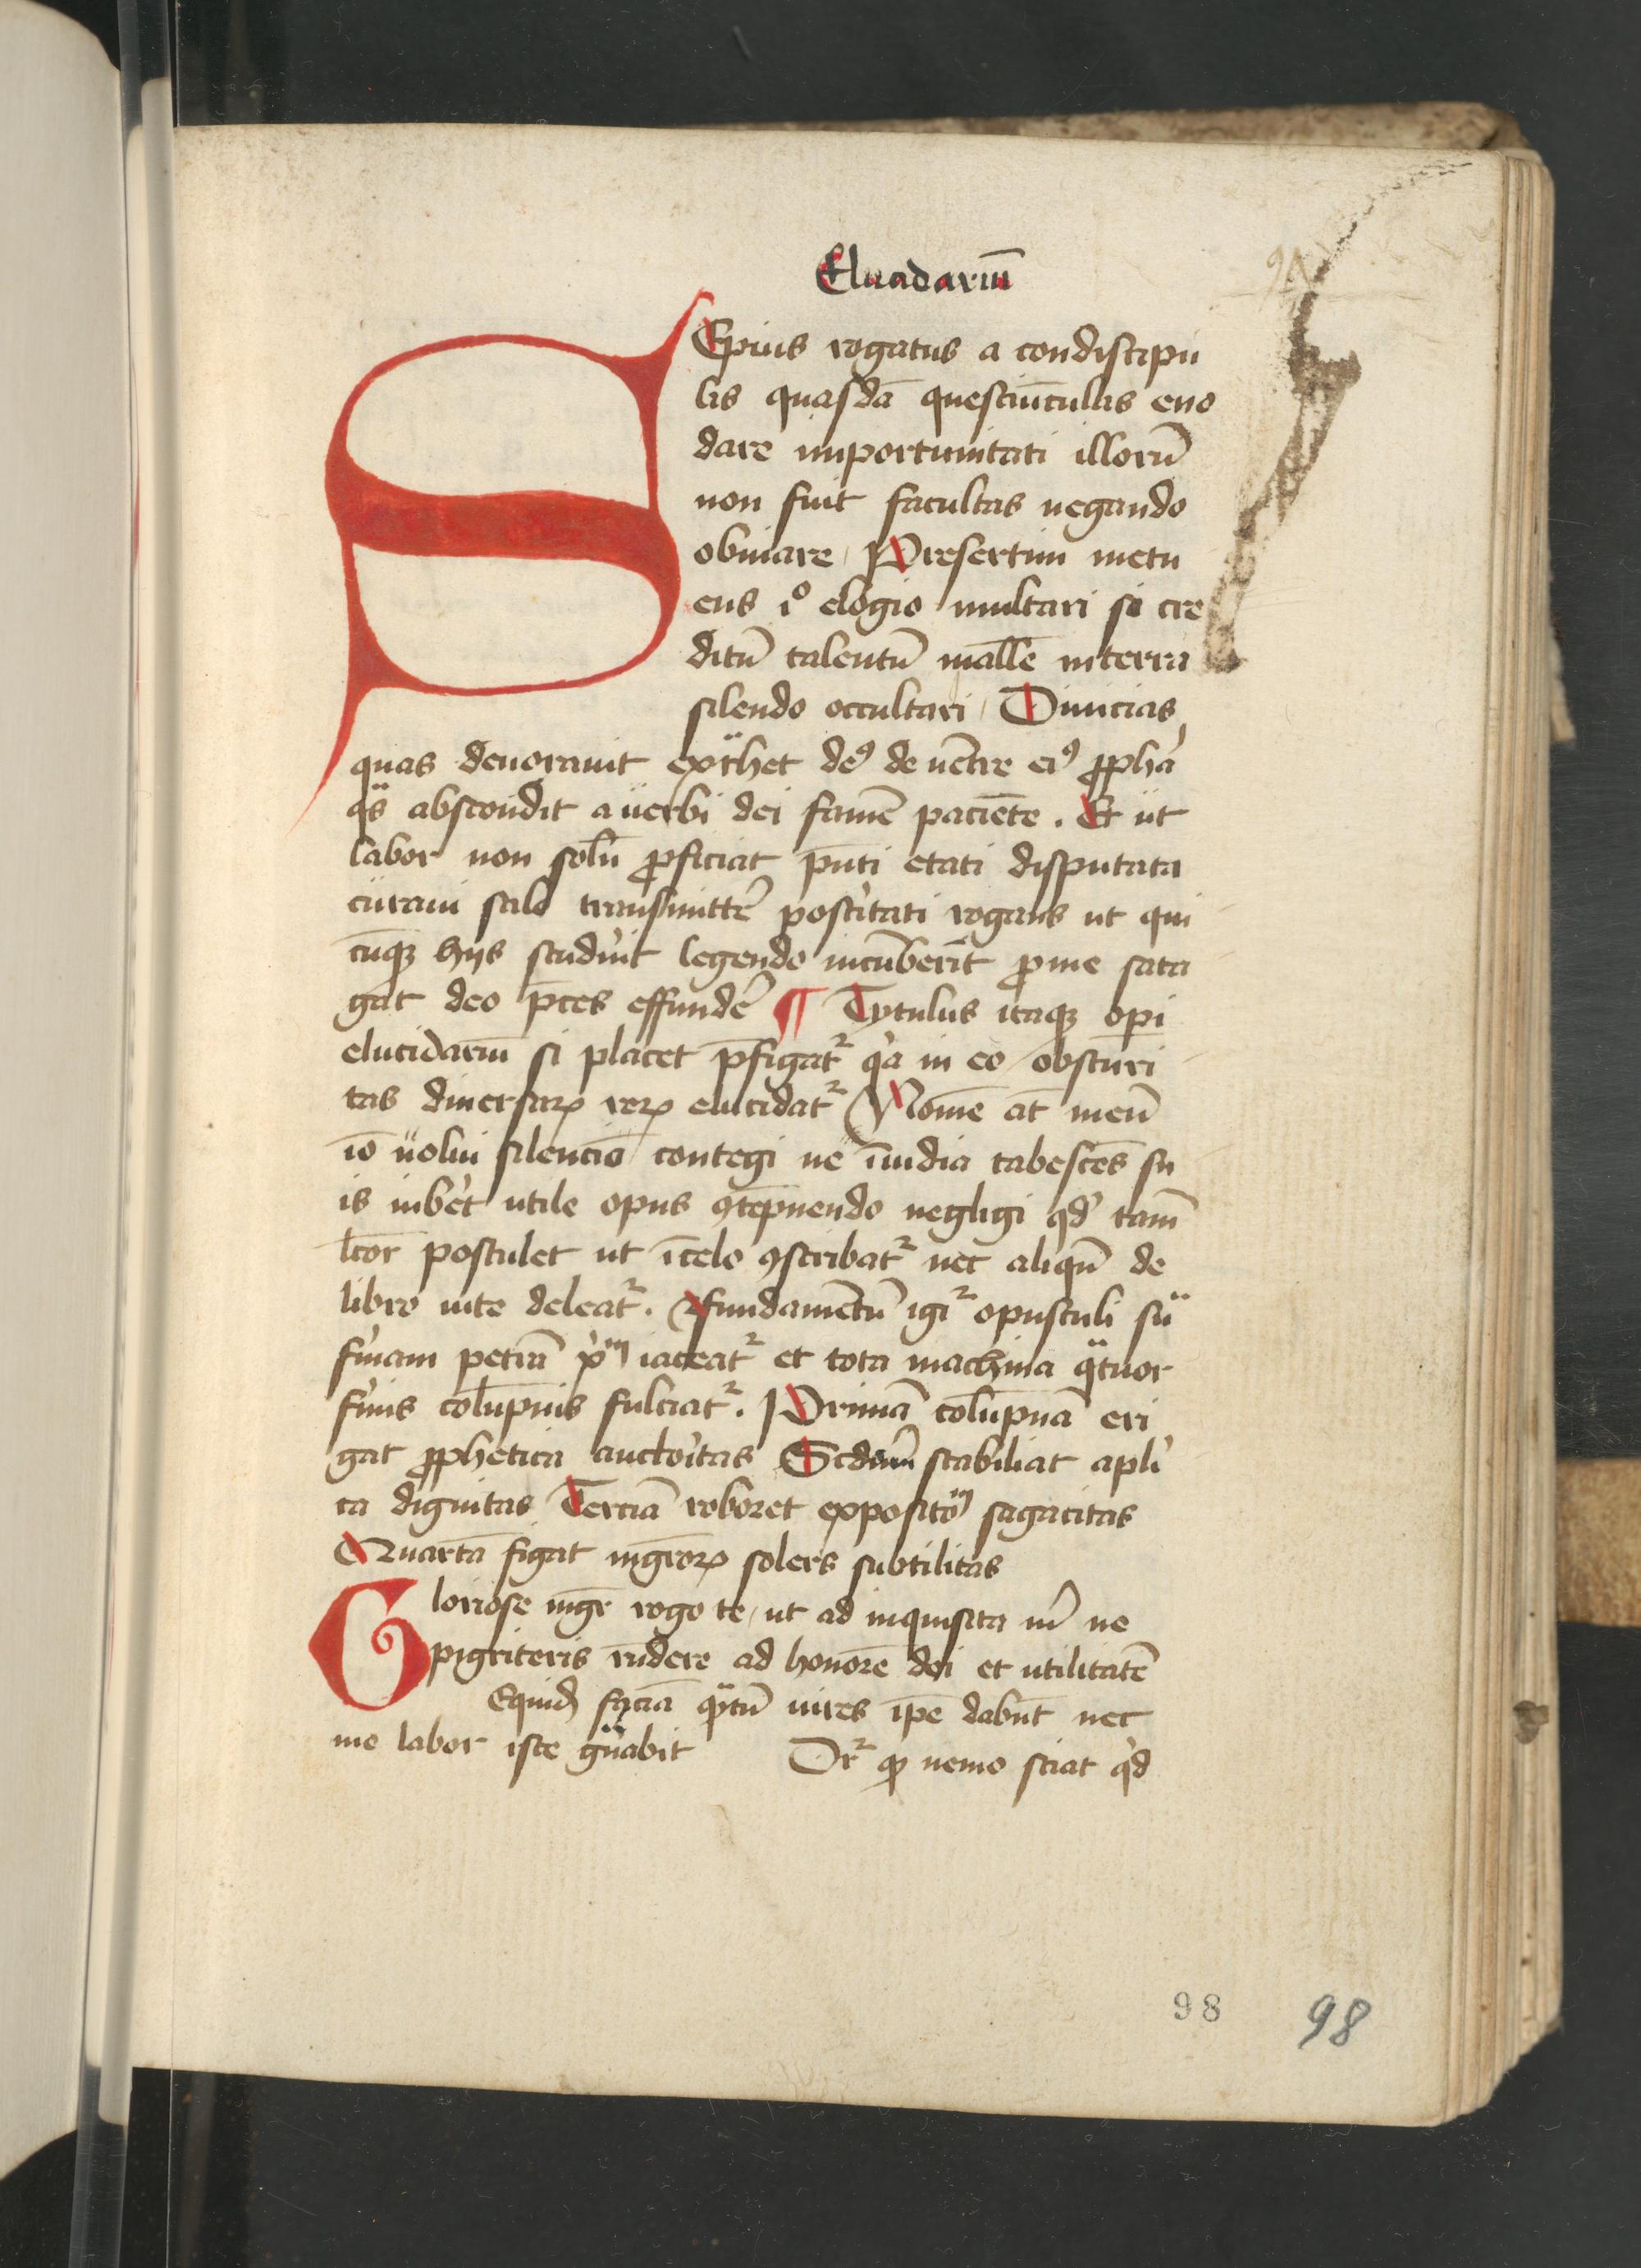 Elucidariū
SEpius rogatus a condiscipu
lis quasdā questiūculas eno
dare inportunitati illorū
non fuit facultas negando
obuiare Presertim metu
ens iº elogio multari si cre
ditū talentū mallē in terra
silendo occultari Diuicias
quas deuorauit extͣhet deꝰ de uētre eiꝰ ꝓpha
qͣs abscondit a uerbi dei famē paciēte. Et ut
labor non solū ꝓficiat p̄nti etati disputata
curaui stilo transmittē posťitati rogans ut qui
cūqꝫ hijs studuit legendo incūberit ꝓ me sata
gat deo p̄ces effundē ¶ Tytulus itaqꝫ opi
elucidariū si placet p̄figatᷣ qͥa in eo obscuri
tas diuersaꝝ reꝝ elucidatᷣ Nomē at̄ meū
iō uolui silencio contegi ne īuidia tabescēs su
is iub̓et utile opus ꝯtēpnendo negligi qd̓ tam̄
lc̄or postulet ut ī celo ꝯscribatᷣ nec aliqn̄ de
libro uite deleatᷣ. Fundamentū igiᷣ opusculi suͣ
firmam petrā xp̄m iaceatᷣ et tota machina qͣtuor
firmis colūpnis fulciatᷣ. Primā colūpnā eri
gat ꝓphetica auctoritas Scd̄am stabiliat apli
ca dignitas Terciā roboret expositoꝝ sagacitas
Quartā figat mgr̄oꝝ solers subtilitas
Gloriose mgr̄ rogo te ut ad inquisita m̄ ne
pigriteris rn̄dere ad honorē dei et utilitatē
Equidꝫ faciā qͣtū uires ip̄e dabūt nec
me labor iste gͣuabit Drᷣ ꝙ nemo sciat qͥd
98
98